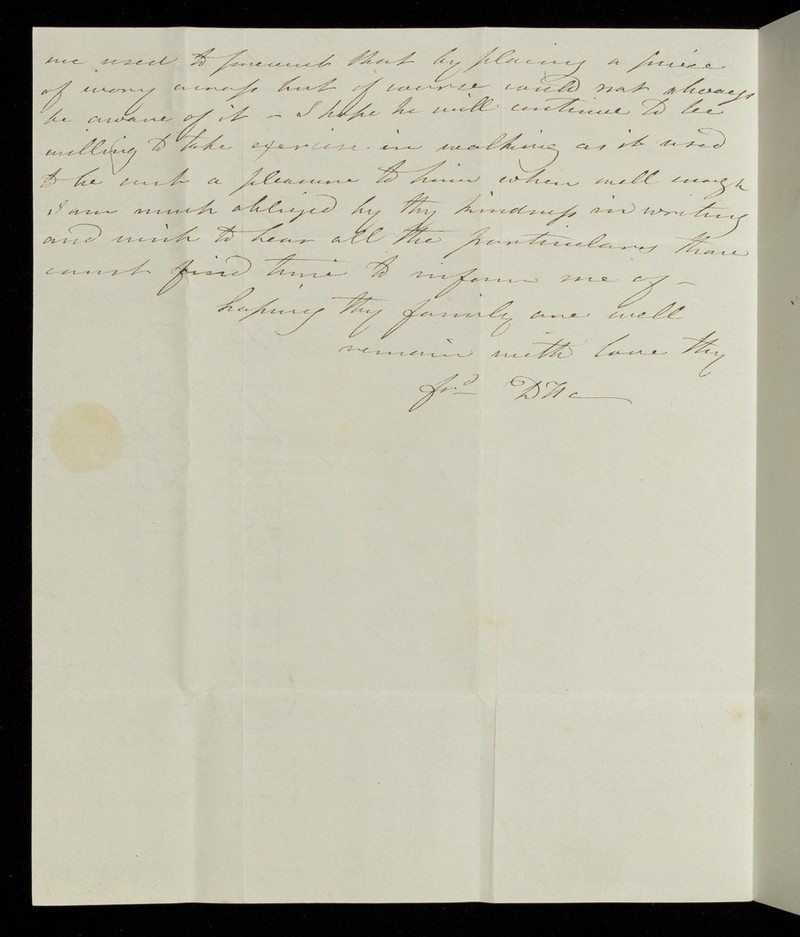 we used to prevent that by placing a piece
of ivory across but of course could not always
be aware of it - I hope he will continue to be
willing to take exercise in walking as it used
to be such a pleasure to him when well enough
I am much obliged by thy kindness in writing
and wish to hear all the particulars thou
canst find time to inform me of -
hoping thy family are well
remain with love thy
frd